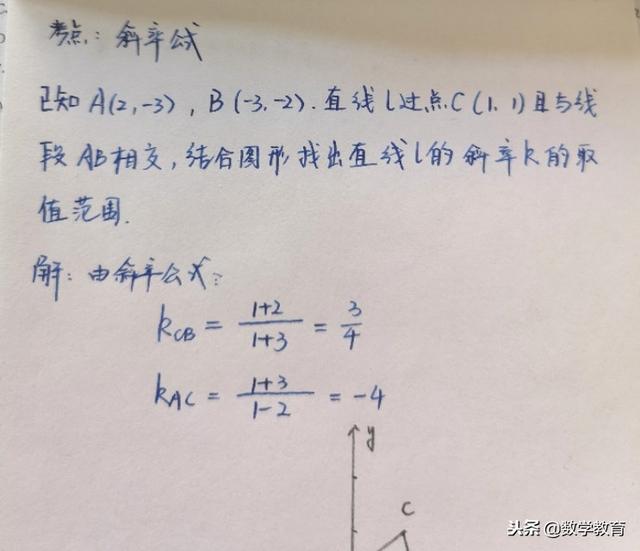 考点：斜率公式
已知A(2,-3), B(-3,-2).直线l过点C(1,1)且与线
段AB相交,结合图形找出直线l的斜率k的取
值范围.
解：由斜率公式：
k_CB = (1+2)/(1+3) = 3/4
k_AC = (1+3)/(1-2) = -4
y
C
头条 @数学教育